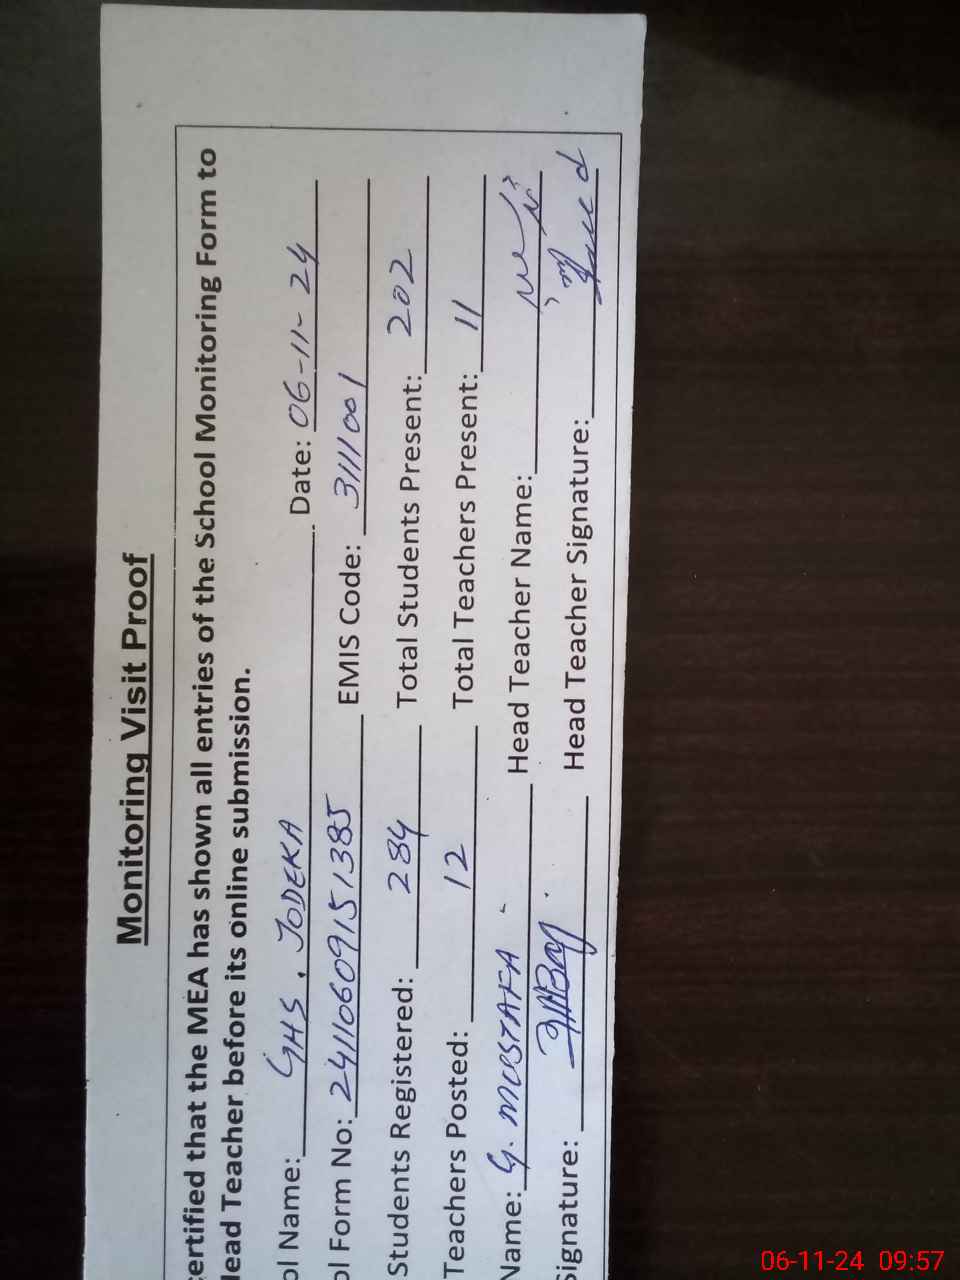 Monitoring Visit Proof
ertified that the MEA has shown all entries of the School Monitoring Form to
Head Teacher before its online submission.
ol Name: GHS. JODEKA Date: 06-11-24
ol Form No: 24110609151385 EMIS Code: 31111001
Students Registered: 284 Total Students Present: 202
Teachers Posted: 12 Total Teachers Present: 11
Name: G. MUSTAFA Head Teacher Name:
Signature: Head Teacher Signature:
06-11-24 09:57